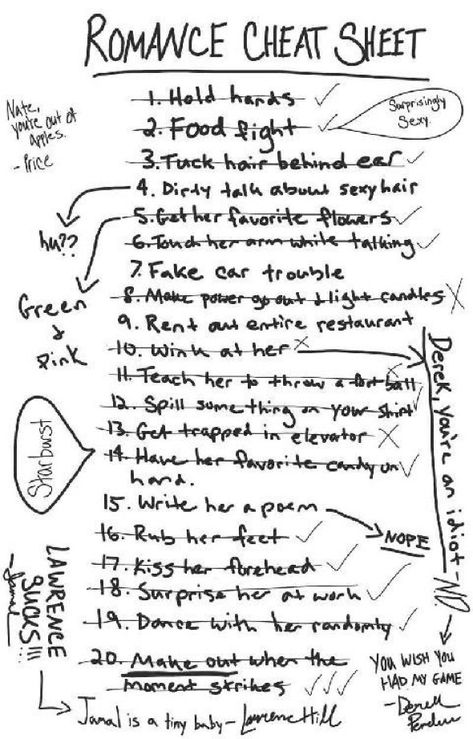 ROMANCE CHEAT SHEET
Nate,
you're out of
apples.
- Price
1. Hold hands ✓
2. Food fight ✓
Surprisingly
Sexy.
3. Tuck hair behind ear ✓
4. Dirty talk about sexy hair
hu??
5. Get her favorite flowers ✓
Green
&
pink
6. Touch her arm while talking ✓
7. Fake car trouble
8. Make power go out & light candles X
9. Rent out entire restaurant
10. Wink at her X
Derek, you're an idiot - ND
11. Teach her to throw a football X
12. Spill something on your shirt ✓
13. Get trapped in elevator X
14. Have her favorite candy on ✓
hand.
Starburst
15. Write her a poem
NOPE
16. Rub her feet ✓
17. Kiss her forehead ✓
18. Surprise her at work ✓
19. Dance with her randomly ✓
20. Make out when the
moment strikes ✓✓✓
LAWRENCE
SUCKS!!!
- Jamal
Jamal is a tiny baby - Lawrence Hill
YOU WISH YOU
HAD MY GAME
- Derek